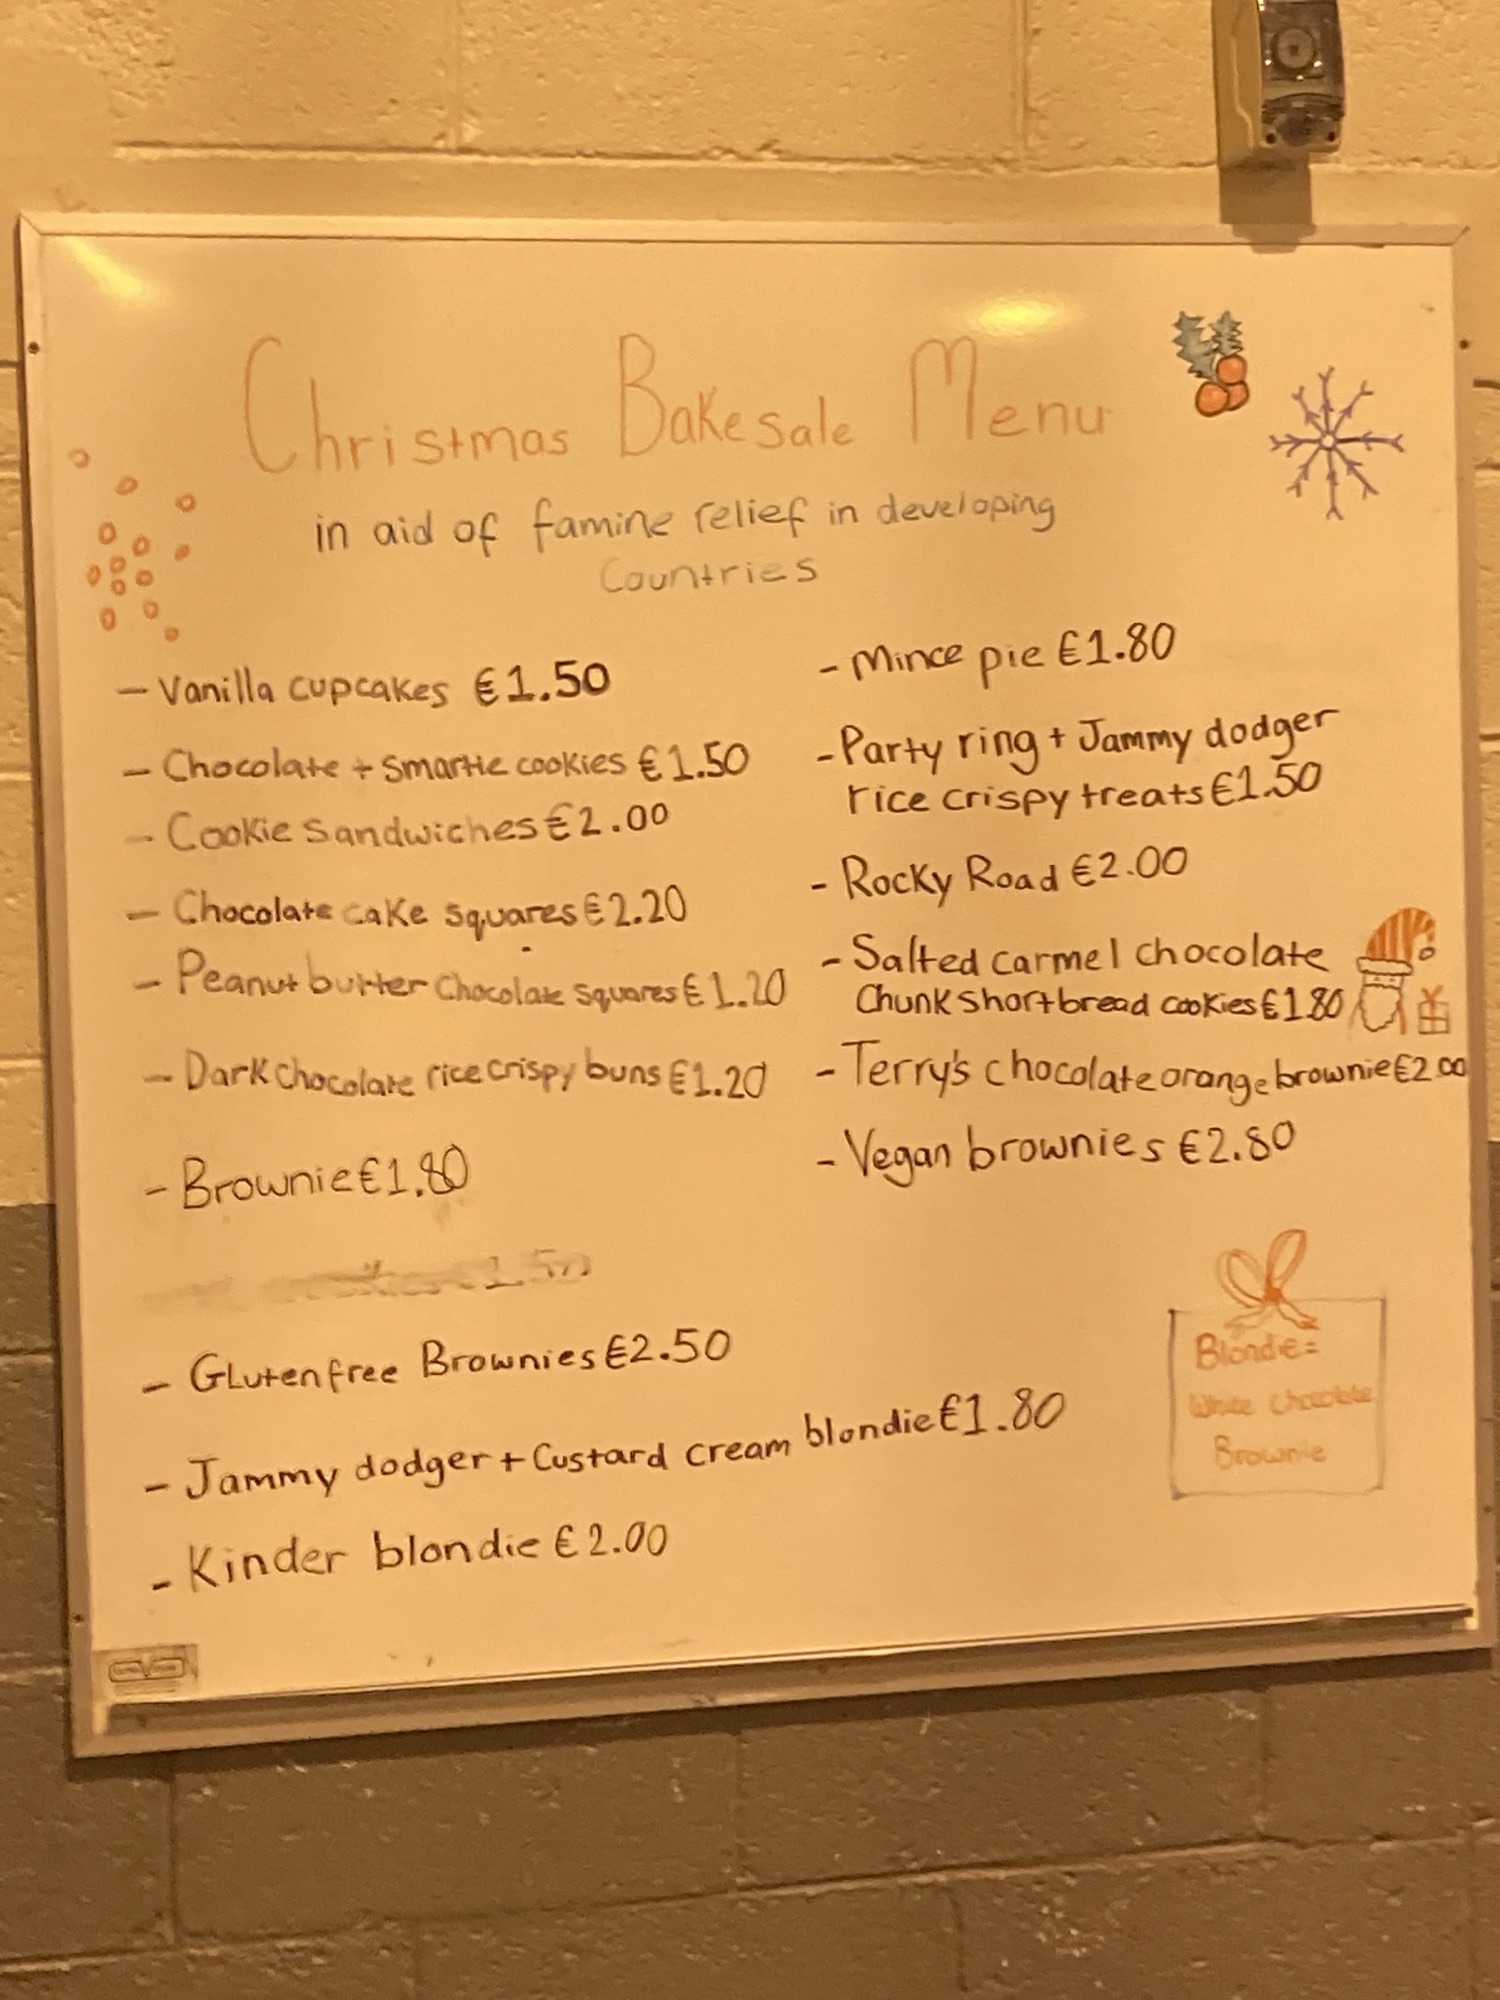 Christmas Bakesale Menu
in aid of famine relief in developing
Countries
- Vanilla cupcakes €1.50
- Chocolate + Smartie cookies €1.50
- Cookie Sandwiches €2.00
- Chocolate cake squares €2.20
- Peanut butter Chocolate squares €1.20
- Dark Chocolate rice crispy buns €1.20
- Brownie €1.80
1.50
- Gluten free Brownies €2.50
- Jammy dodger + Custard cream blondie €1.80
- Kinder blondie €2.00
- Mince pie €1.80
- Party ring + Jammy dodger
rice crispy treats €1.50
- Rocky Road €2.00
- Salted carmel chocolate
Chunk shortbread cookies €1.80
- Terry's chocolate orange brownie €2.00
- Vegan brownies €2.80
Blondie =
White Chocolate
Brownie